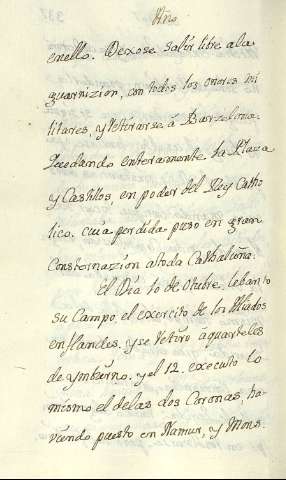 Año
enello. Dexose salir libre ala
guarnizion, con todos los onores mi
litares, y Retirarse â Barzelona.
Quedando enteramente la Plaza
y Castillos, en poder del Rey Catho
lico. cuia perdida puso en gran
Consternazion atoda Cathaluña.
El Dia 10 de Otubre, lebanto
su Campo, el exercito de los Aliados
en flandes, y se Retiro â quarteles
de ymbierno. y el 12. executo lo
mismo el delas dos Coronas, ha-
viendo puesto en Namur, y Mons.